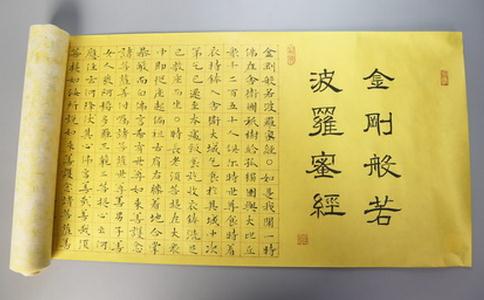 金剛般若
波羅蜜經
金剛般若波羅蜜經。如是我聞一時
佛在舍衛國祇樹給孤獨園與大比丘
衆千二百五十人俱尔時世尊食時着
衣持鉢入舍衛大城乞食於其城中次
第乞已還至本處飯食訖收衣鉢洗足
已敷座而坐。時長老須菩提在大衆
中即從座起偏袒右肩右膝着地合掌
恭敬而白佛言希有世尊如來善護念
諸菩薩善付囑諸菩薩世尊善男子善
女人發阿耨多羅三藐三菩提心云何
應住云何降伏其心佛言善哉善哉須
菩提如汝所說如來善護念諸菩薩善